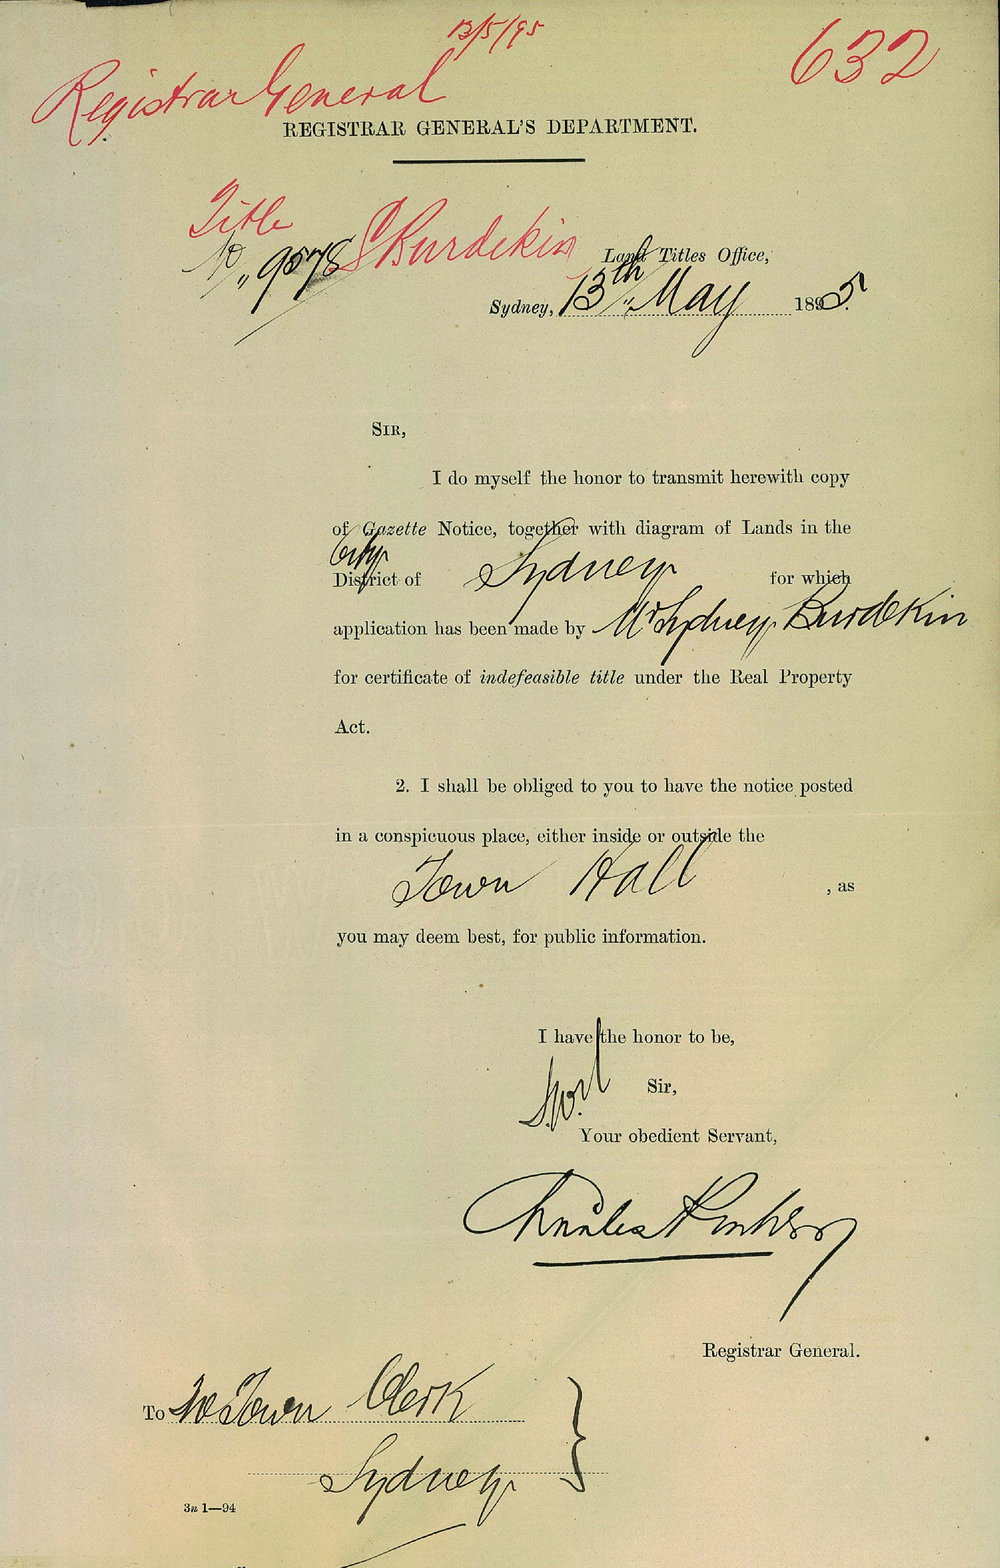 13/5/95
632
Registrar General
REGISTRAR GENERAL'S DEPARTMENT.
Title
No „ 9578 S Burdekin
Land Titles Office,
Sydney, 13th „ May 1895.
SIR,
I do myself the honor to transmit herewith copy
of Gazette Notice, together with diagram of Lands in the
City
District of Sydney for which
application has been made by Mr Sydney Burdekin
for certificate of indefeasible title under the Real Property
Act.
2. I shall be obliged to you to have the notice posted
in a conspicuous place, either inside or outside the
Town Hall , as
you may deem best, for public information.
I have the honor to be,
Sir,
Your obedient Servant,
Charles
Registrar General.
To Town Clerk
Sydney
3n 1—94